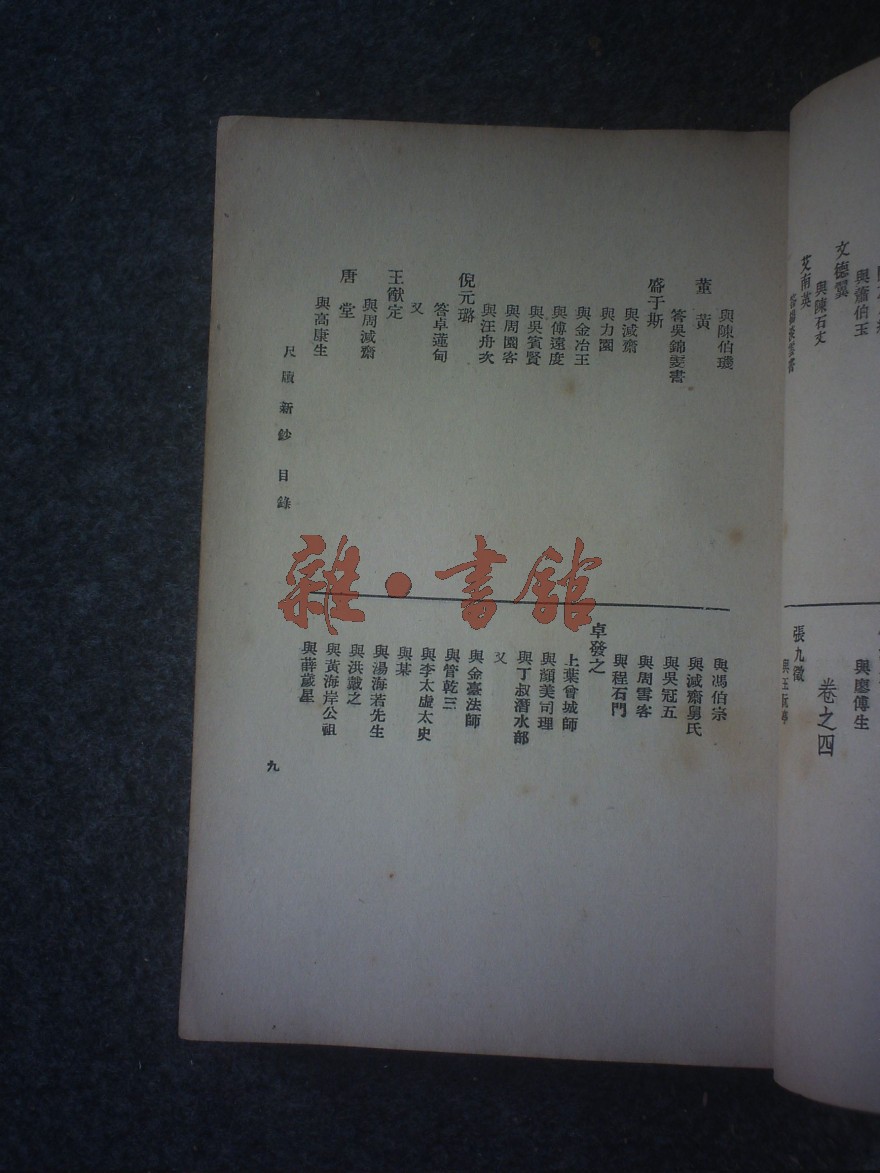 文德翼
與蕭伯玉
與陳石丈
艾南英
與廖傅生
卷之四
張九徵
與陳伯璣
董黃
答吳錦雯書
盛于斯
與減齋
與力園
與金冶王
與傅遠度
與吳賓賢
與周園客
與汪舟次
倪元璐
答卓蓮旬
又
王猷定
與周減齋
唐堂
與高康生
尺牘新鈔 目錄
與馮伯宗
與減齋舅氏
與吳冠五
與周雪客
與程石門
卓發之
上葉曾城師
與顏美司理
與丁叔潛水部
又
與金臺法師
與管乾三
與李太虛太史
與某
與湯海若先生
與洪戴之
與黃海岸公祖
與薛歲星
九
雜·書館